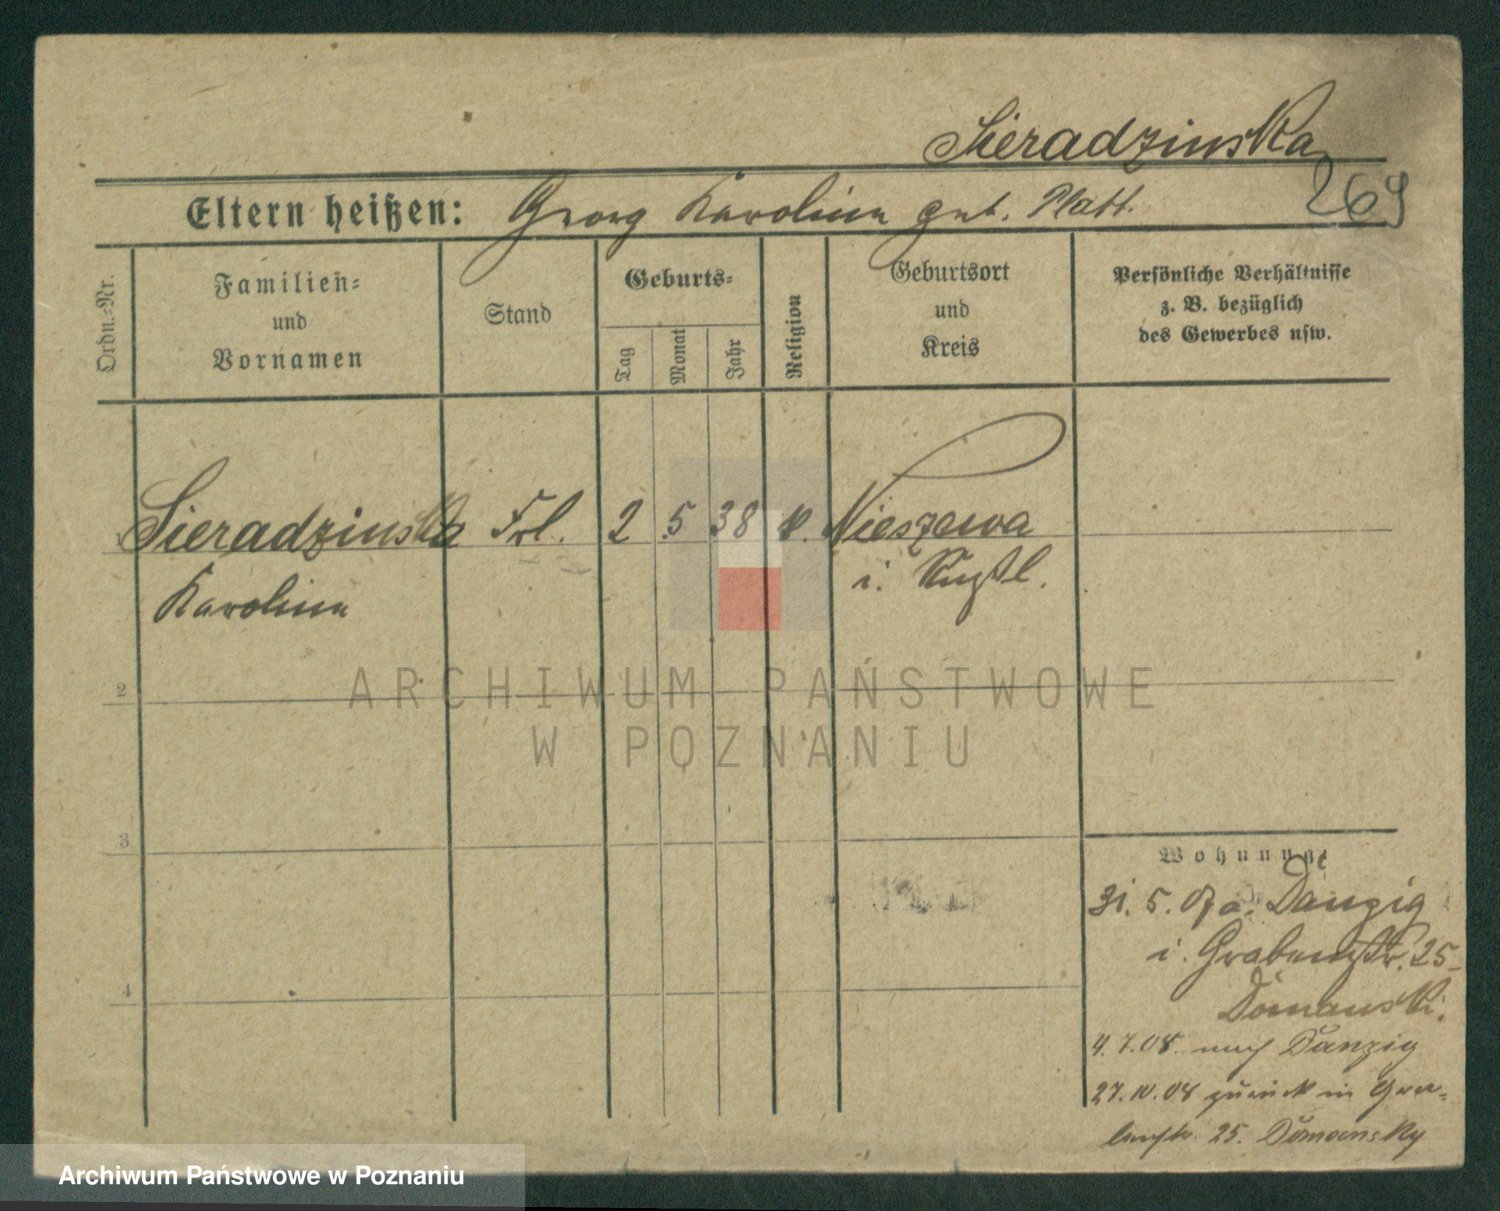 Sieradzinska
269
Eltern heißen: Georg Karoline geb. Platt.
Ordn.=Nr.
Familien=
und
Vornamen
Stand
Geburts=
Tag
Monat
Jahr
Religion
Geburtsort
und
Kreis
Persönliche Verhältnisse
z. B. bezüglich
des Gewerbes usw.
1 Sieradzinska Frl. 2 5 38 k. Nieszewa
Karoline i.
2
3
4
Wohnung
31. 5. 07 a. Danzig
i. Grabenstr. 25
Domanski.
4. 7. 08. nach Danzig
27. IV. 08 zurück in Gra-
benstr. 25. Domansky
ARCHIWUM PAŃSTWOWE
W POZNANIU
Archiwum Państwowe w Poznaniu